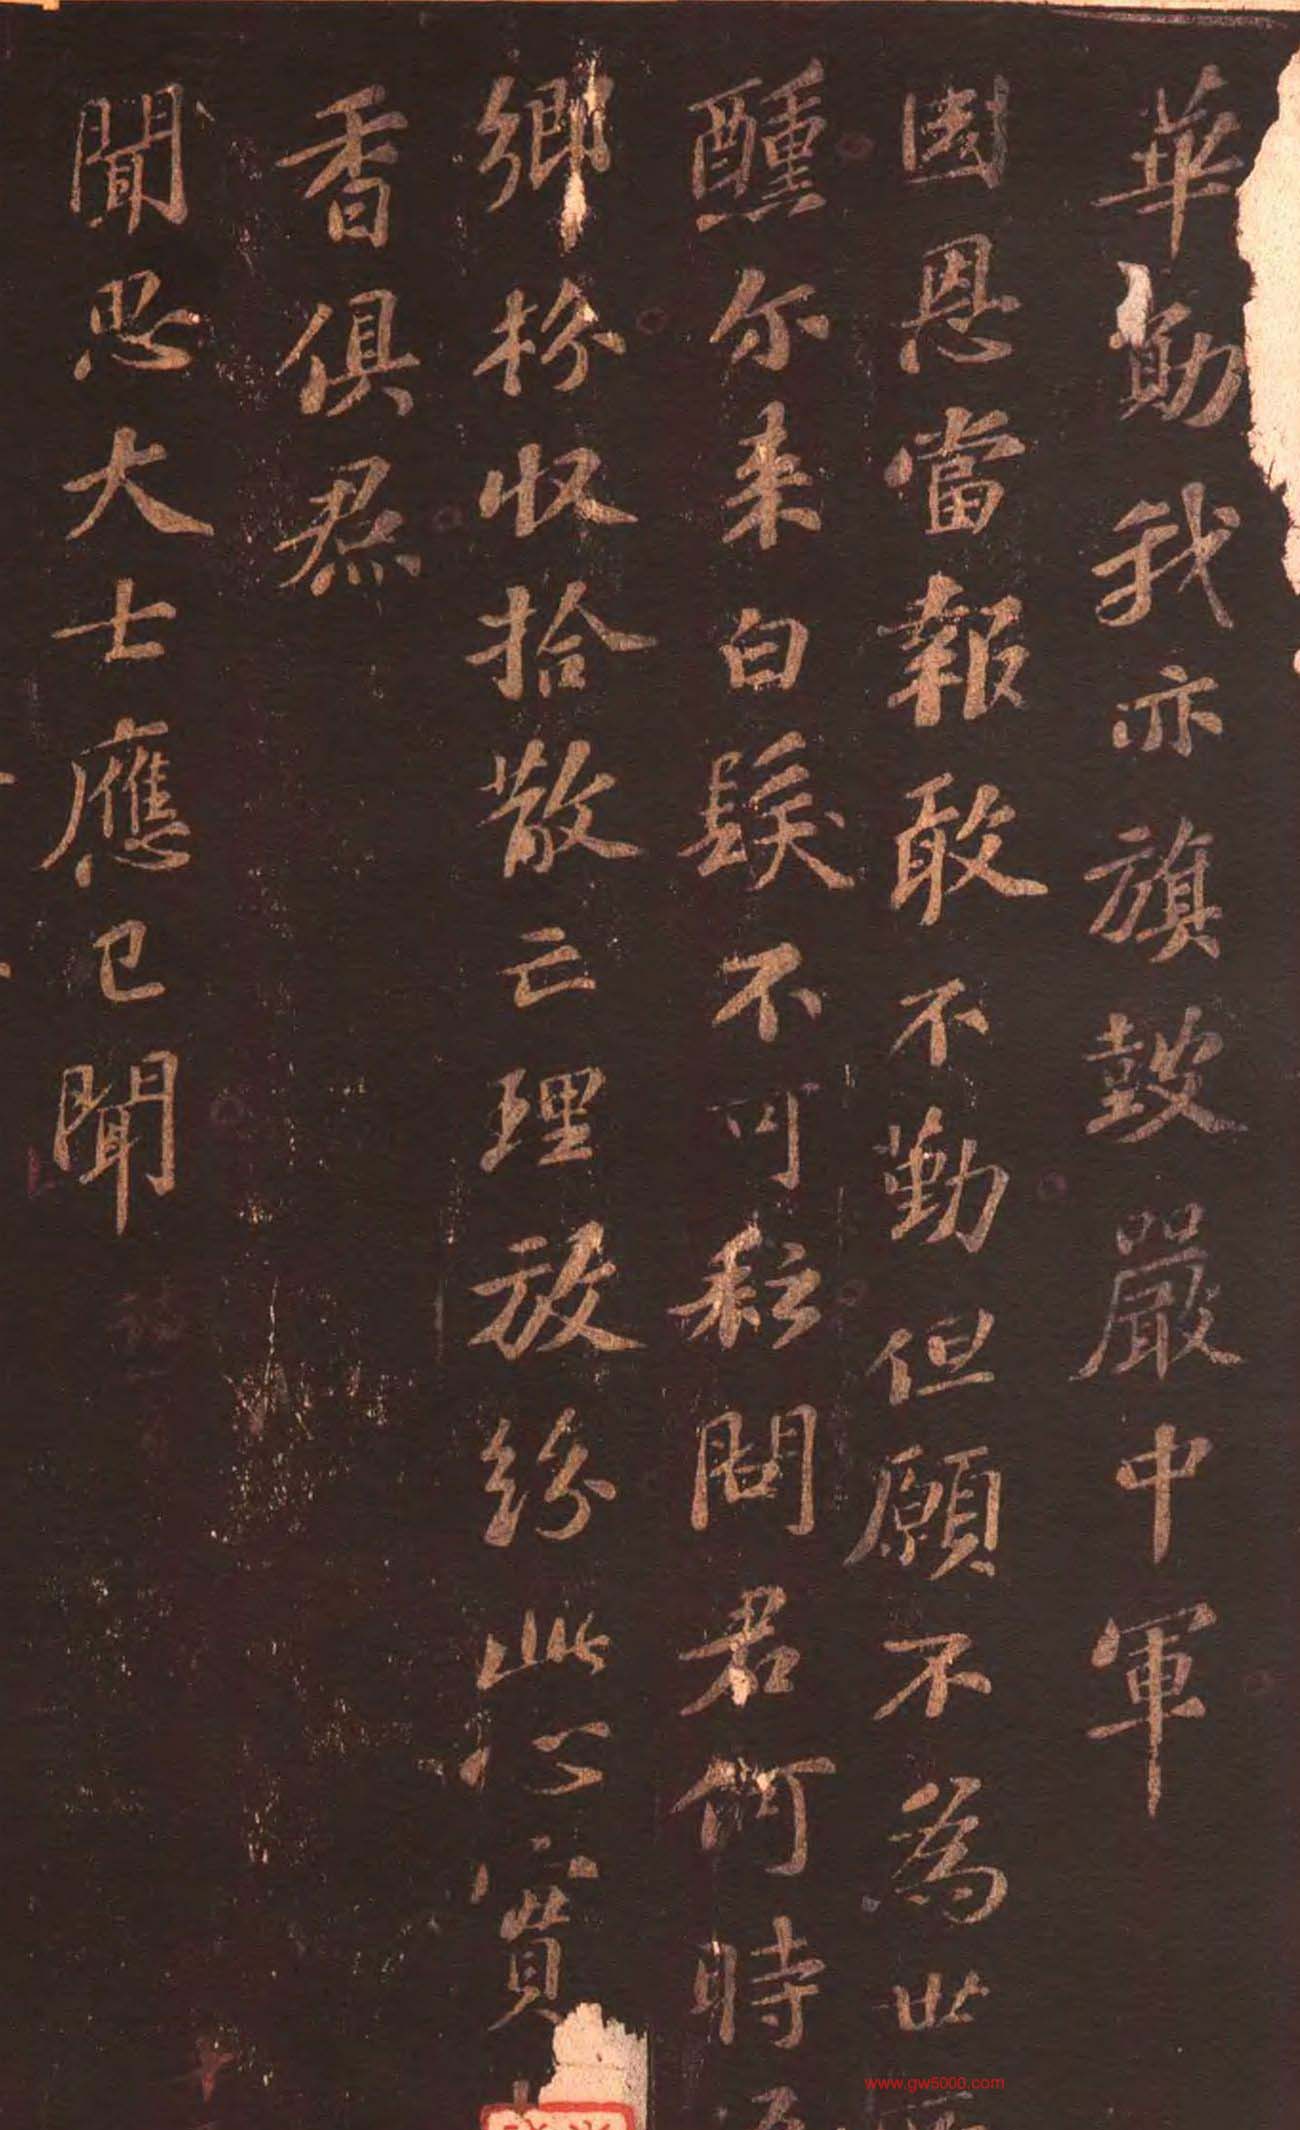 華勛我亦旗鼓嚴中軍
國恩當報敢不勤但願不為世
醺尔来白髮不可耘問君何時
鄉枌收拾散亡理放紛此心實
香俱焄
聞思大士應已聞
www.gw5000.com